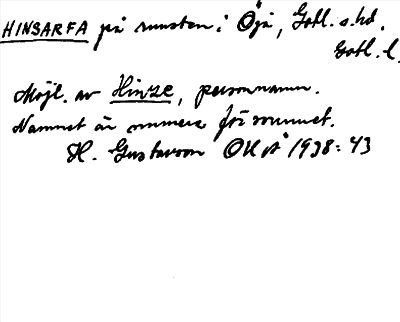 HINSARFA på runsten i Öjå, Gotl. s. hd.
Gotl. l.
Möjl. av Hinze, personnamn.
Namnet är numera försvunnet.
H. Gustavson OUÅ 1938: 43